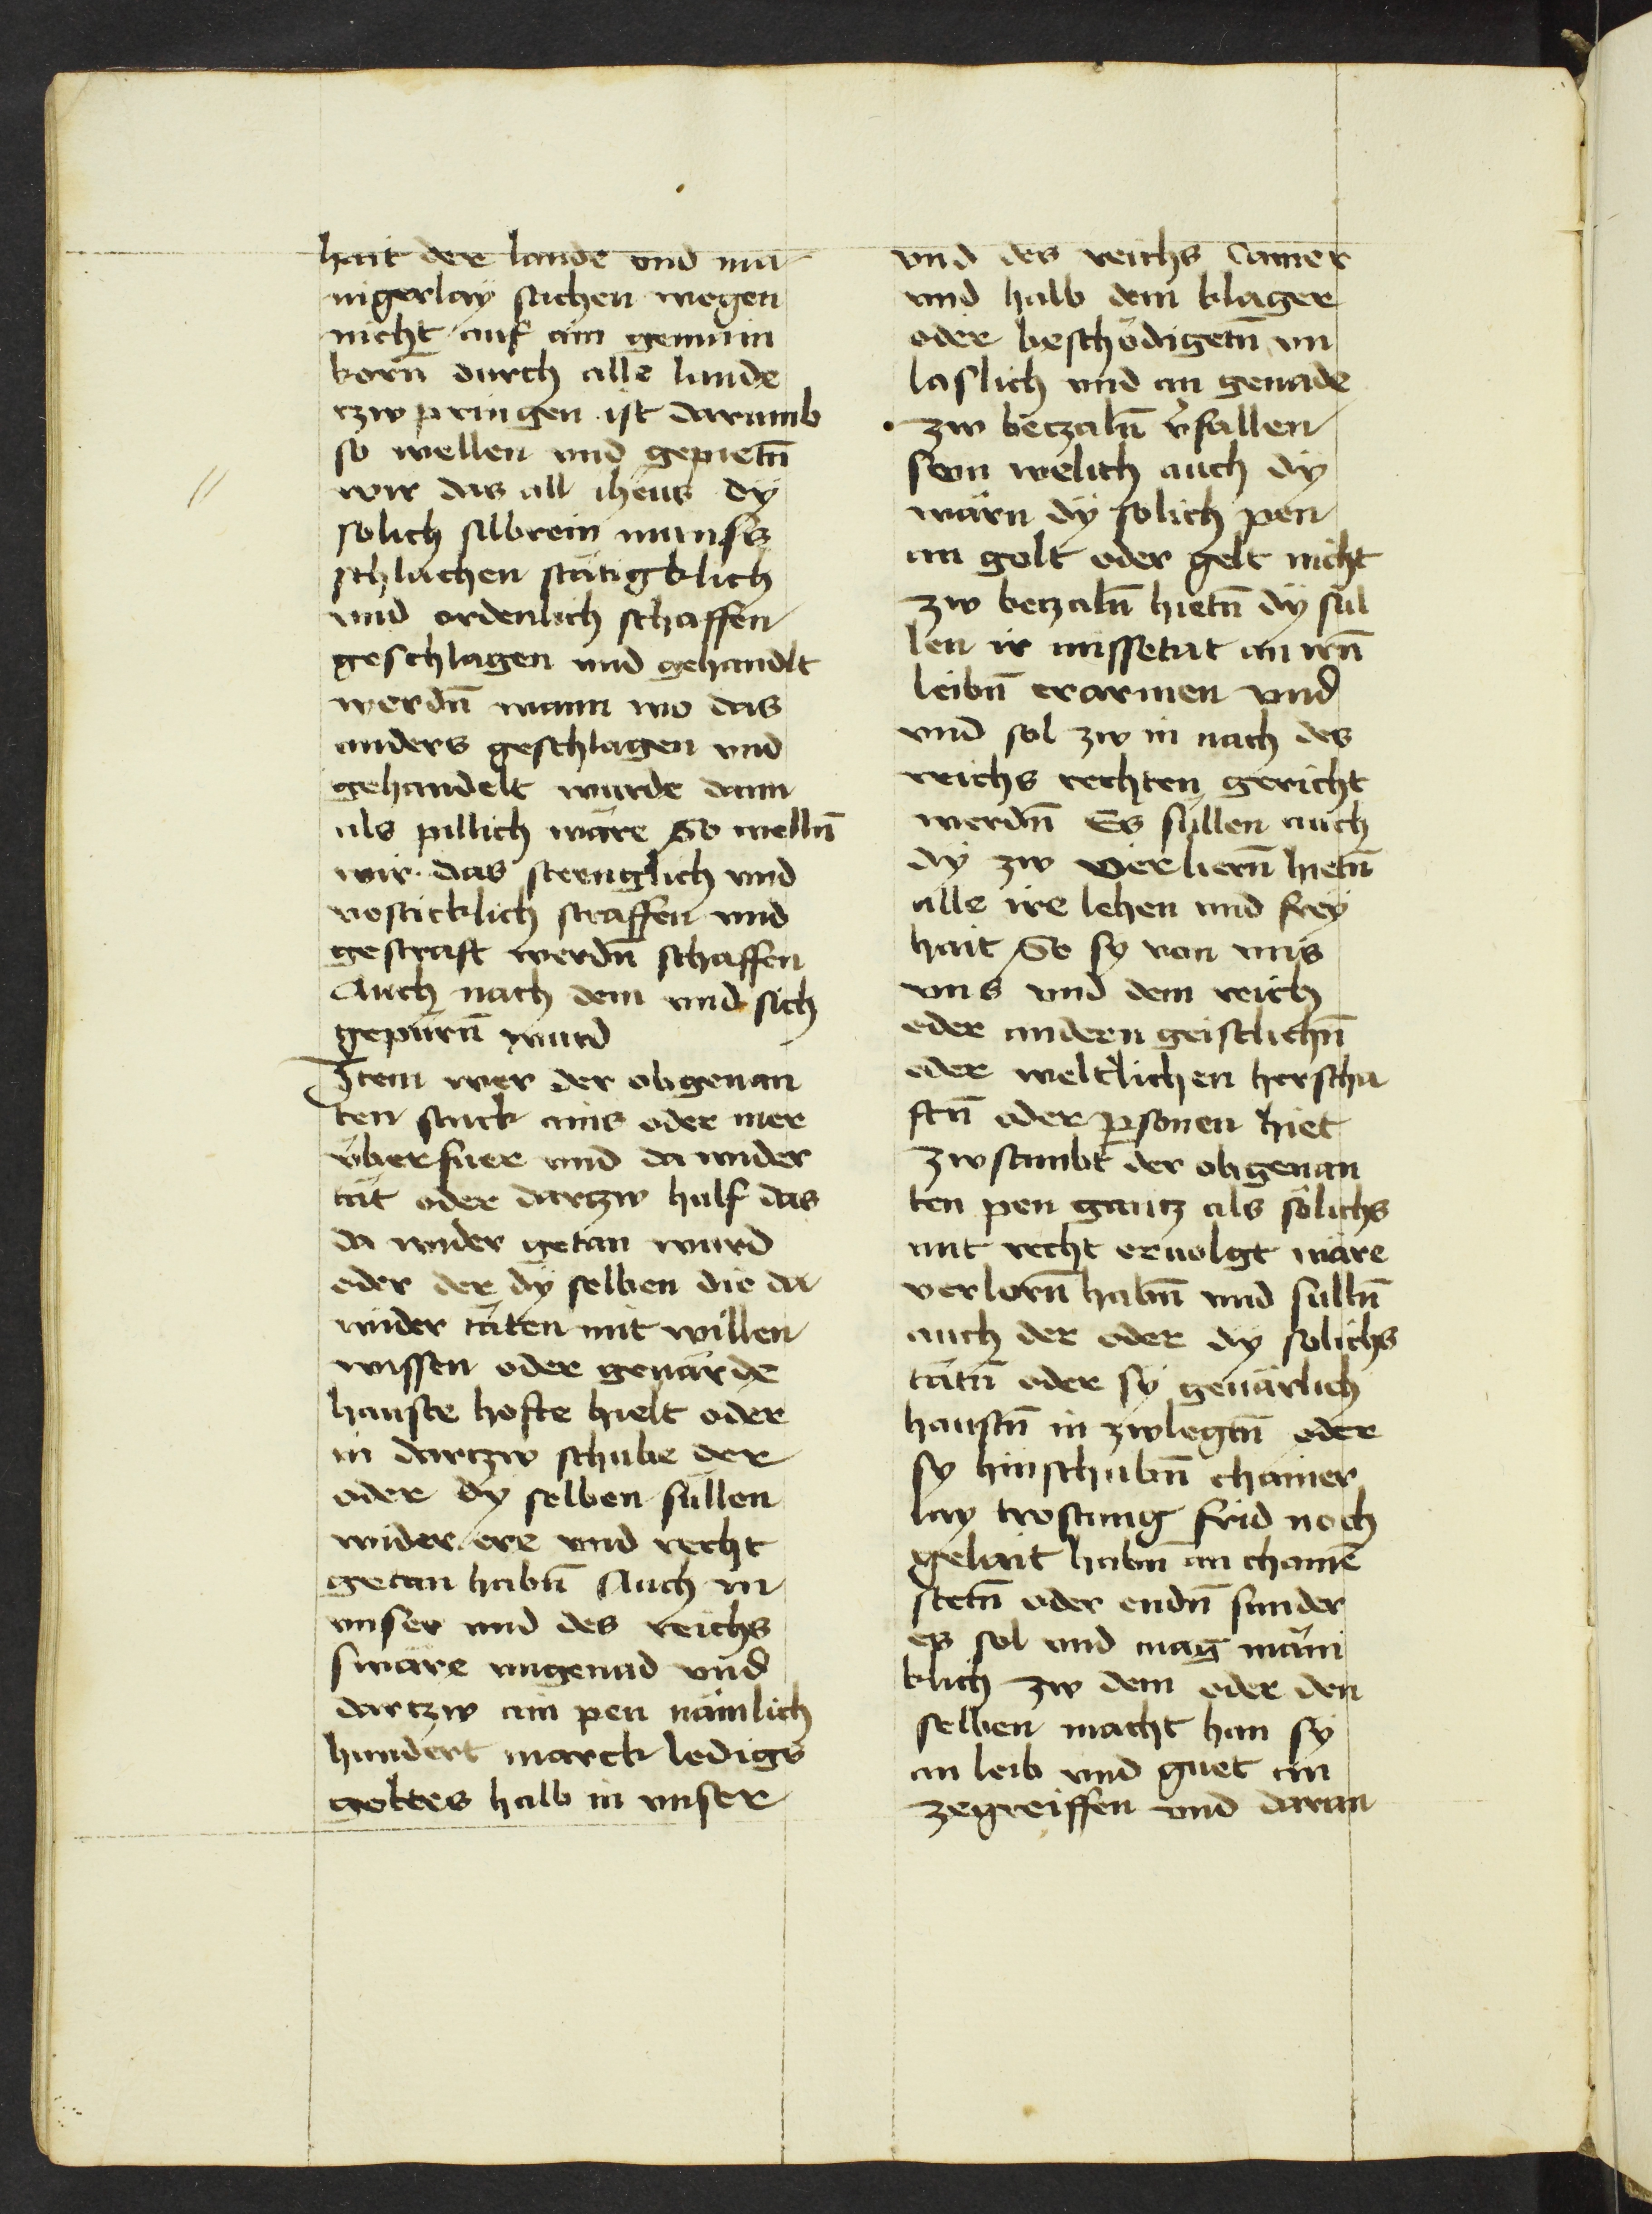 hait der lande vnd ma
nigerlay sachen wegen
nicht auf ain gemain
korn̄ durch alle lande
czw pringen ist darumb
so wellen vnd gepietn̄
wir das all ihens dy
solich silbrein munss
schlachen stätigklich
vnd ordenlich schaffen
geschlagen vnd gehandlt
werdn̄ wann wo das
anders geschlagen vnd
gehandelt wurde dann
als pillich wäre So welln̄
wir das strenglich vnd
vesticklich straffen vnd
gestraft werdn̄ schaffen
Auch nach dem vnd sich
gepürn̄ wurd
Item wer der obgenan
ten stuck ains oder mer
überfuer vnd da wider
tät oder dartzw hulf das
da wider getan wurd
oder der dy selben die da
wider täten mit willen
wissen oder geuärde
hauste hofte hielt oder
in dartzw schube der
oder dy selben süllen
wider ere vnd recht
getan habn̄ Auch in
vnser vnd des reichs
swäre vngenad vnd
dartzw ain pen nämlich
hundert marck ledigs
goltes halb in vnser
vnd des reichs Camer
vnd halb dem klager
oder beschödigetn̄ vn
laslich vnd an genade
zw beczaln̄ v̄fallen
sein welich auch dÿ
wärn dÿ solich pen
an golt oder gelt nicht
zw beczaln̄ hietn̄ dÿ sül
len ir missetat an irn̄
leibn̄ erarmen vnd
vnd sol zw in nach des
reichs rechten gericht
werdn̄ Es süllen auch
dÿ zw verliern̄ hietn̄
alle ire lehen vnd freÿ
hait So sy von vns
vns vnd dem reich
oder andern geistlichn̄
oder weltlichen herscha
ftn̄ oder personen hiet
zwstambt der obgenan
ten pen gantz als sölichs
mit recht eruolgt wäre
verlorn̄ habn̄ vnd sülln̄
auch der oder dÿ solichs
tätn̄ oder sÿ geuärlich
haustn̄ in zwlegtn̄ oder
sy hinschubn̄ chainer
lay trostung frid noch
gelait habn̄ an chainē
stetn̄ oder endn̄ sunder
es sol vnd mag mäni
klich zw dem oder den
selben macht han sÿ
an leib vnd guet an
zegreiffen vnd daran